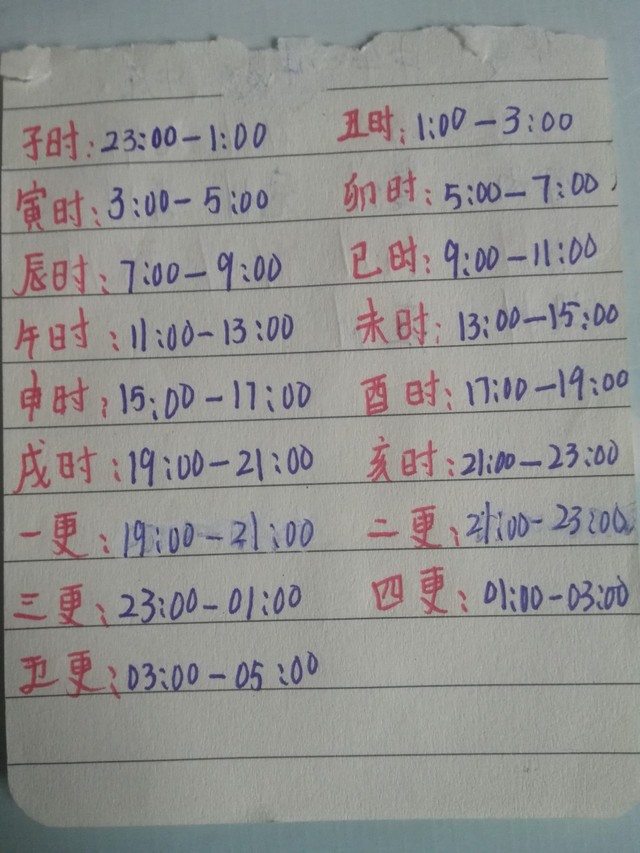 子时:23:00-1:00 丑时:1:00-3:00
寅时:3:00-5:00 卯时:5:00-7:00
辰时:7:00-9:00 巳时:9:00-11:00
午时:11:00-13:00 未时:13:00-15:00
申时:15:00-17:00 酉时:17:00-19:00
戌时:19:00-21:00 亥时:21:00-23:00
一更:19:00-21:00 二更:21:00-23:00
三更:23:00-01:00 四更:01:00-03:00
五更:03:00-05:00